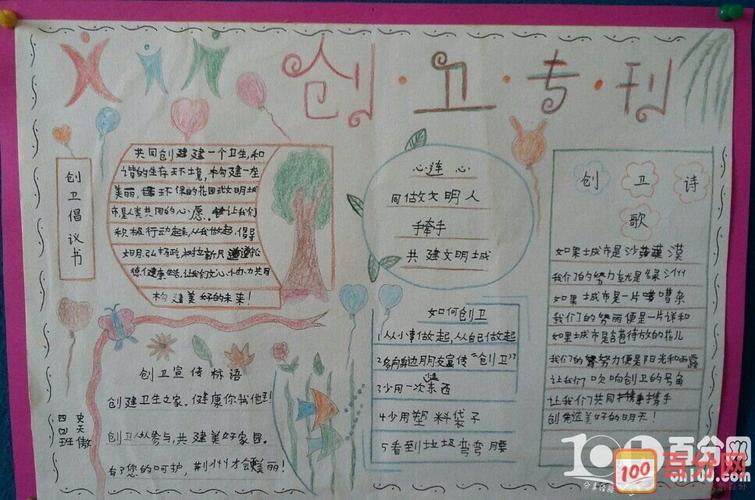 创·卫·专·刊
创卫倡议书
共同创建建一个卫生,和
谐的生存环境,构建一座
美丽,环保的花园文明城
市是人类共同的心愿,让我们
积极行动起来,从我做起,倡导
构建美好的未来!
心连心
同做文明人
手牵手
共建文明城
创卫诗
歌
如果土城市是沙漠
我们的努力就是绿洲
如果土城市是一片嘈杂
我们的努力便是一片详和
如果土城市是含苞待放的花儿
我们的努力便是阳光和雨露
让我们吹响创卫的号角
让我们共同携手
创造美好的明天!
如何创卫
1从小事做起,从自己做起
2多向身边朋友宣传“创卫”
3少用一次性东西
4少用塑料袋子
5看到垃圾弯弯腰
创卫宣传标语
创建卫生之家。健康你我他!
创卫从参与,共建美好家园。
有了您的呵护,荆州才会美丽!
四四班
史天傲
100百分网
cn100.com
100
百分网